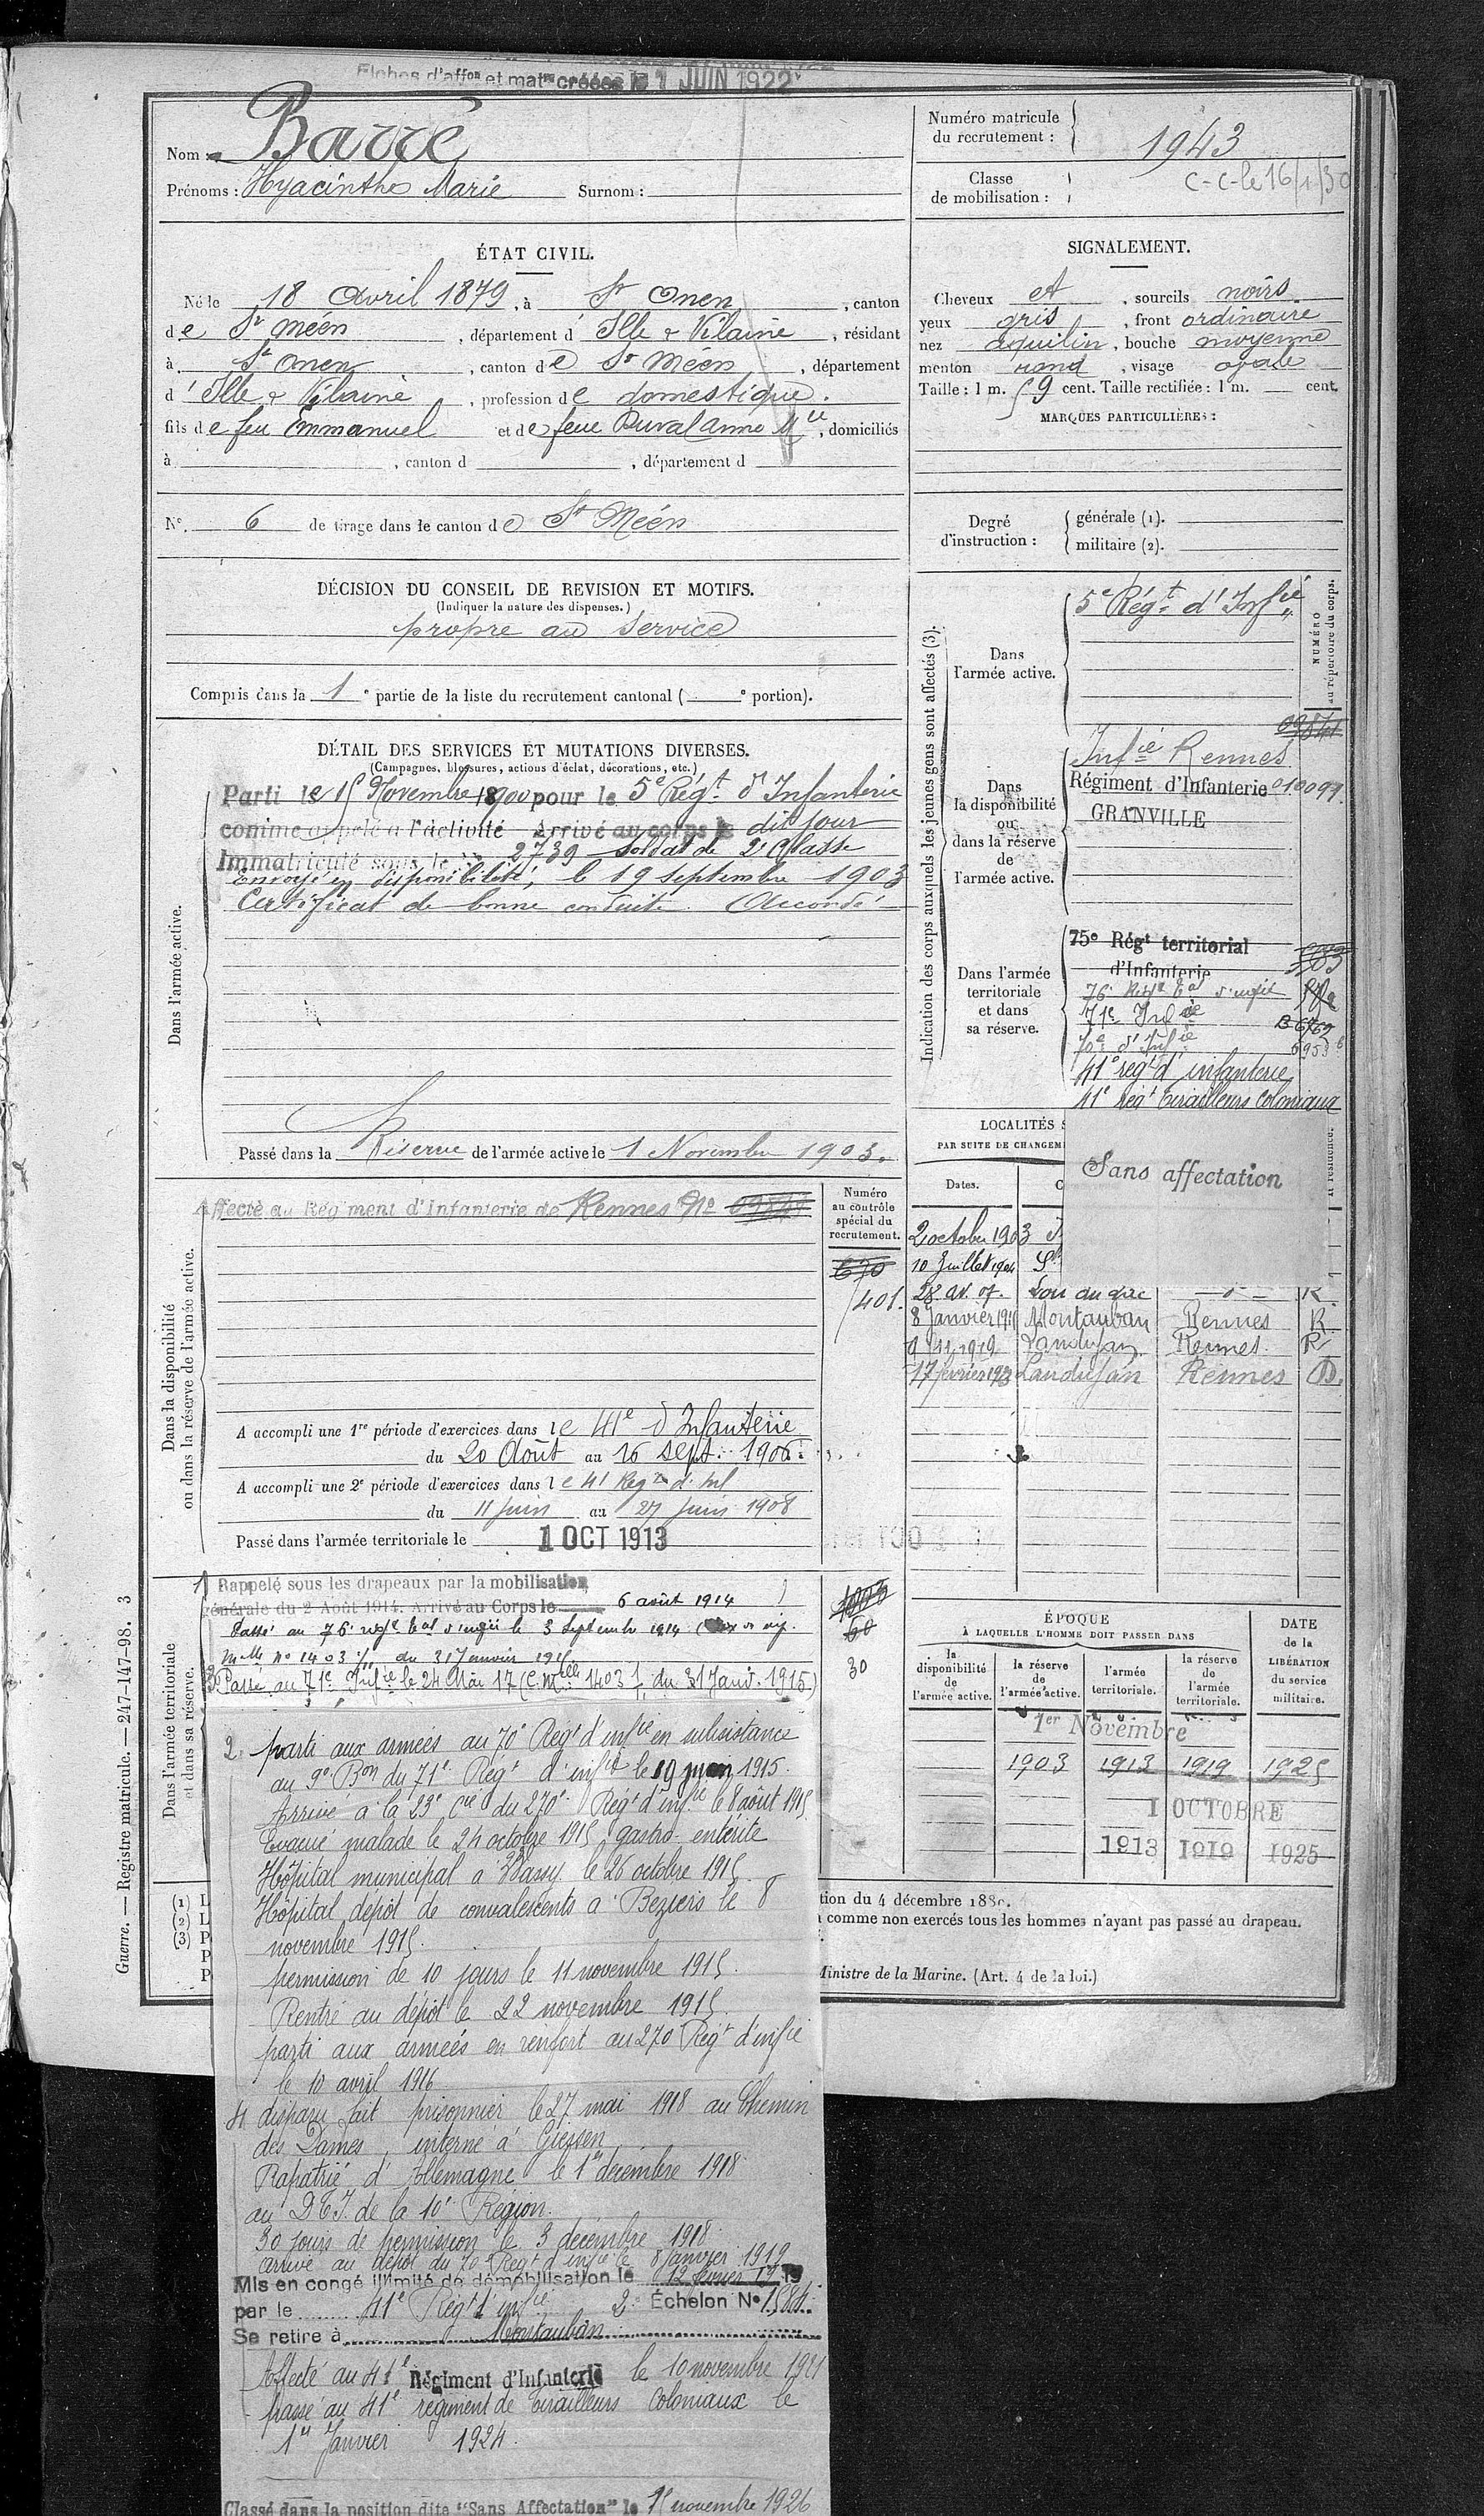 Fiches d'affon et matle créées le 1 JUIN 1922
Nom : Barré
Prénoms : Hyacinthe Marie Surnom :
Numéro matricule
du recrutement : 1943
Classe
de mobilisation :
C-C-le 16/1/30
ÉTAT CIVIL.
Né le 18 Avril 1879, à St Onen, canton
de St Méen, département d Ille & Vilaine, résidant
à St Onen, canton de St Méen, département
d' Ille & Vilaine, profession de domestique.
fils de feu Emmanuel et de feue Duval Anne Mie, domiciliés
à , canton d , département d
N° 6 de tirage dans le canton de St Méen
SIGNALEMENT.
Cheveux et , sourcils noirs
yeux gris , front ordinaire
nez aquilin , bouche moyenne
menton rond , visage ovale
Taille : 1 m. 59 cent. Taille rectifiée : 1 m. cent.
MARQUES PARTICULIÈRES :
Degré
d'instruction :
générale (1).
militaire (2).
DÉCISION DU CONSEIL DE REVISION ET MOTIFS.
(Indiquer la nature des dispenses.)
propre au service
Compris dans la 1e partie de la liste du recrutement cantonal ( e portion).
DÉTAIL DES SERVICES ET MUTATIONS DIVERSES.
(Campagnes, blessures, actions d'éclat, décorations, etc.)
Dans l'armée active.
Parti le 15 Novembre 1900 pour le 5e Régt d'Infanterie
comme appelé à l'activité Arrivé au corps le dit jour
Immatriculé sous le N° 2739 Soldat de 2e Classe
Envoyé en disponibilité, le 19 septembre 1903
Certificat de bonne conduite Accordé
Passé dans la Réserve de l'armée active le 1 Novembre 1903.
Indication des corps auxquels les jeunes gens sont affectés (3).
NUMÉRO
au répertoire du corps.
Dans
l'armée active.
5e Régt d'Infie
Dans
la disponibilité
ou
dans la réserve
de
l'armée active.
09841
Infie Rennes
Régiment d'Infanterie 010099.
GRANVILLE
Dans l'armée
territoriale
et dans
sa réserve.
75e Régt territorial
d'Infanterie
71e Infie
70e d'Infie
41e régt d'infanterie
41e Régt tirailleurs coloniaux
Sans affectation
LOCALITÉS
PAR SUITE DE CHANGEM
Dates.
2 octobre 1903
10 Juillet 1904 St
28 av. 07. Lou du Lac R
8 Janvier 1911 Montauban Rennes R
9 1919 Landujan Rennes R
17 février 1923 Landujan Rennes D.
Dans la disponibilité
ou dans la réserve de l'armée active.
Affecté au Régiment d'Infanterie de Rennes N° 09841
Numéro
au contrôle
spécial du
recrutement.
670
401.
A accompli une 1re période d'exercices dans le 41e d'Infanterie
du 20 Août au 16 sept. 1906.
A accompli une 2e période d'exercices dans le 41 Régt d'Inf
du 11 Juin au 27 Juin 1908
Passé dans l'armée territoriale le 1 OCT 1913
Dans l'armée territoriale
et dans sa réserve.
1 Rappelé sous les drapeaux par la mobilisation
générale du 2 Août 1914. Arrivé au Corps le 6 août 1914
Passé au 76e régt tal d'infie le 3 septembre 1914
Melle N° 1403 1/1 du 31 Janvier 1915
3 Passé au 71e Infie le 24 Mai 17 (C. Melle 1403 1/1 du 31 Janv. 1915)
60
30
2. parti aux armées au 70e Régt d'infie en subsistance
au 9e Bon du 71e Régt d'infie le 19 juin 1915.
Arrivé à la 23e Cie du 270e Régt d'infie le 8 août 1915
Evacué malade le 24 octobre 1915 gastro-entérite
Hôpital municipal à Wassy le 26 octobre 1915.
Hôpital dépôt de convalescents à Beziers le 8
novembre 1915.
permission de 10 jours le 11 novembre 1915.
Rentré au dépôt le 22 novembre 1915.
parti aux armées en renfort au 270 Régt d'infie
le 10 avril 1916
4 disparu fait prisonnier le 27 mai 1918 au Chemin
des Dames, interné à Giessen
Rapatrié d'Allemagne le 1er décembre 1918
au D.T.I. de la 10e Région.
30 jours de permission le 3 décembre 1918.
arrivé au dépôt du 70e Régt d'infie le 8 Janvier 1919
Mis en congé illimité de démobilisation le 12 février 1919
par le 41e Régt d'infie 2e Échelon N° 1584.
Se retire à Montauban
Affecté au 41e Régiment d'Infanterie le 10 novembre 1921
passé au 41e régiment de Tirailleurs Coloniaux le
1er Janvier 1924.
Classé dans la position dite "Sans Affectation" le 15 novembre 1926
ÉPOQUE
À LAQUELLE L'HOMME DOIT PASSER DANS
la
disponibilité
de
l'armée active.
la réserve
de
l'armée active.
l'armée
territoriale.
la réserve
de
l'armée
territoriale.
DATE
de la
LIBÉRATION
du service
militaire.
1er Novembre
1903 1913 1919 1925
1 OCTOBRE
1913 1919 1925
(1) L
(2) L
(3) P
P
P
tion du 4 décembre 1889.
comme non exercés tous les hommes n'ayant pas passé au drapeau.
Ministre de la Marine. (Art. 4 de la loi.)
Guerre. — Registre matricule. — 247-147-98. 3